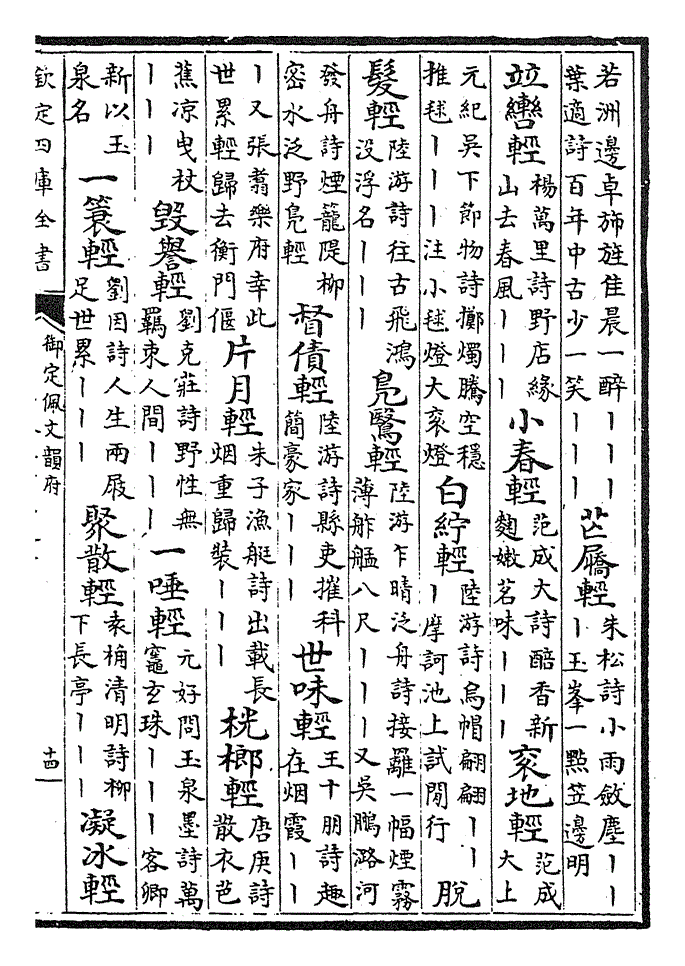 若洲邊卓斾旌佳晨一醉丨丨丨葉適詩百年中古少一笑丨丨丨芒屩輕朱松詩小雨斂塵丨丨丨玉峯一點笠邊明
竝轡輕楊萬里詩野店緣山去春風丨丨丨小春輕范成大詩醅香新麴嫩茗味丨丨丨衮地輕范成大上
元紀吳下節物詩擲燭騰空穩推毬丨丨丨注小毬燈大衮燈白紵輕陸游詩烏帽翩翩丨丨丨摩訶池上試閒行脫
髮輕陸游詩往古飛鴻没浮名丨丨丨鳧鷖輕陸游乍晴泛舟詩接䍦一幅煙霧薄舴艋八尺丨丨丨又吳鵬潞河
發舟詩煙籠隄柳密水泛野鳧輕督債輕陸游詩縣吏摧科簡豪家丨丨丨世味輕王十朋詩趣在烟霞丨丨
丨又張翥樂府幸此世累輕歸去衡門偃片月輕朱子漁艇詩出載長烟重歸裝丨丨丨桄榔輕唐庚詩散衣芭
蕉凉曳杖丨丨丨毁譽輕劉克莊詩野性無羈束人間丨丨丨一唾輕元好問玉泉墨詩萬竈玄珠丨丨丨客卿
新以玉泉名一蓑輕劉因詩人生兩屐足世累丨丨丨聚散輕袁桷清明詩柳下長亭丨丨丨凝冰輕
欽定四庫全書
御定佩文韻府
十四